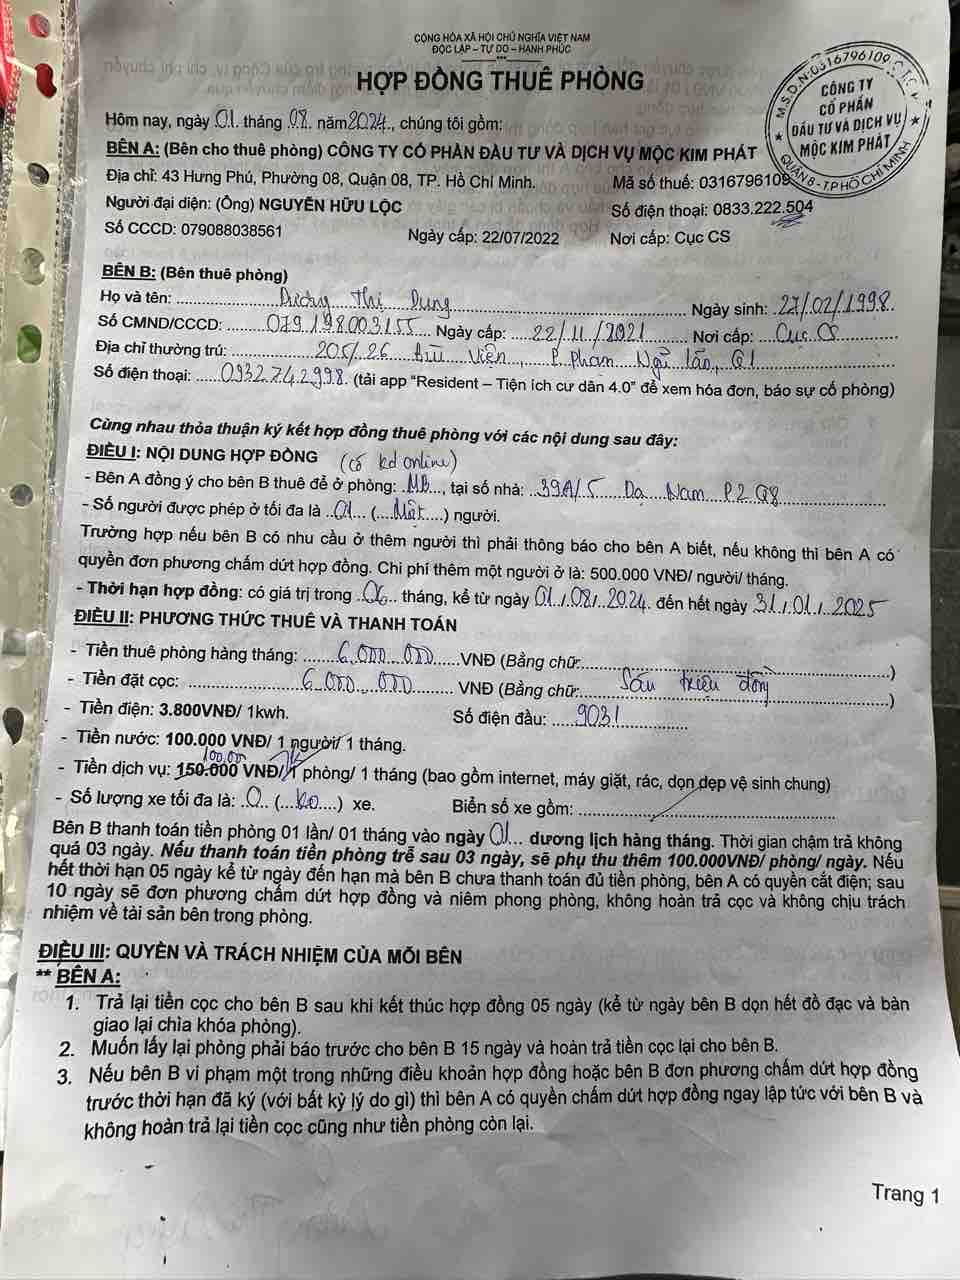 CỘNG HÒA XÃ HỘI CHỦ NGHĨA VIỆT NAM
ĐỘC LẬP – TỰ DO – HẠNH PHÚC
HỢP ĐỒNG THUÊ PHÒNG
M.S.D.N:0316796109
CÔNG TY
CỔ PHẦN
ĐẦU TƯ VÀ DỊCH VỤ
MỘC KIM PHÁT
QUẬN 8 - T.P HỒ CHÍ MINH
Hôm nay, ngày 01 tháng 08 năm 2024, chúng tôi gồm:
BÊN A: (Bên cho thuê phòng) CÔNG TY CỔ PHẦN ĐẦU TƯ VÀ DỊCH VỤ MỘC KIM PHÁT
Địa chỉ: 43 Hưng Phú, Phường 08, Quận 08, TP. Hồ Chí Minh. Mã số thuế: 0316796109
Người đại diện: (Ông) NGUYỄN HỮU LỘC Số điện thoại: 0833.222.504
Số CCCD: 079088038561 Ngày cấp: 22/07/2022 Nơi cấp: Cục CS
BÊN B: (Bên thuê phòng)
Họ và tên: Dương Thị Dung Ngày sinh: 27/02/1998
Số CMND/CCCD: 079198003155 Ngày cấp: 22/11/2021 Nơi cấp: Cục CS
Địa chỉ thường trú: 205/26 Bùi Viện, P. Phạm Ngũ Lão, Q1
Số điện thoại: 0932742998. (tải app “Resident – Tiện ích cư dân 4.0” để xem hóa đơn, báo sự cố phòng)
Cùng nhau thỏa thuận ký kết hợp đồng thuê phòng với các nội dung sau đây:
ĐIỀU I: NỘI DUNG HỢP ĐỒNG (có kd online)
- Bên A đồng ý cho bên B thuê để ở phòng: MB, tại số nhà: 39A/5 Dạ Nam P2 Q8
- Số người được phép ở tối đa là 01 (Một) người.
Trường hợp nếu bên B có nhu cầu ở thêm người thì phải thông báo cho bên A biết, nếu không thì bên A có
quyền đơn phương chấm dứt hợp đồng. Chi phí thêm một người ở là: 500.000 VNĐ/ người/ tháng.
- Thời hạn hợp đồng: có giá trị trong 06 tháng, kể từ ngày 01/08/2024. đến hết ngày 31/01/2025
ĐIỀU II: PHƯƠNG THỨC THUÊ VÀ THANH TOÁN
- Tiền thuê phòng hàng tháng: 6.000.000 VNĐ (Bằng chữ: )
- Tiền đặt cọc: 6.000.000 VNĐ (Bằng chữ: Sáu triệu đồng )
- Tiền điện: 3.800VNĐ/ 1kwh. Số điện đầu: 9031
- Tiền nước: 100.000 VNĐ/ 1 người/ 1 tháng.
100.000
- Tiền dịch vụ: 150.000 VNĐ/ 1 phòng/ 1 tháng (bao gồm internet, máy giặt, rác, dọn dẹp vệ sinh chung)
- Số lượng xe tối đa là: 0 (ko) xe. Biển số xe gồm:
Bên B thanh toán tiền phòng 01 lần/ 01 tháng vào ngày 01 dương lịch hàng tháng. Thời gian chậm trả không
quá 03 ngày. Nếu thanh toán tiền phòng trễ sau 03 ngày, sẽ phụ thu thêm 100.000VNĐ/ phòng/ ngày. Nếu
hết thời hạn 05 ngày kể từ ngày đến hạn mà bên B chưa thanh toán đủ tiền phòng, bên A có quyền cắt điện; sau
10 ngày sẽ đơn phương chấm dứt hợp đồng và niêm phong phòng, không hoàn trả cọc và không chịu trách
nhiệm về tài sản bên trong phòng.
ĐIỀU III: QUYỀN VÀ TRÁCH NHIỆM CỦA MỖI BÊN
** BÊN A:
1. Trả lại tiền cọc cho bên B sau khi kết thúc hợp đồng 05 ngày (kể từ ngày bên B dọn hết đồ đạc và bàn
giao lại chìa khóa phòng).
2. Muốn lấy lại phòng phải báo trước cho bên B 15 ngày và hoàn trả tiền cọc lại cho bên B.
3. Nếu bên B vi phạm một trong những điều khoản hợp đồng hoặc bên B đơn phương chấm dứt hợp đồng
trước thời hạn đã ký (với bất kỳ lý do gì) thì bên A có quyền chấm dứt hợp đồng ngay lập tức với bên B và
không hoàn trả lại tiền cọc cũng như tiền phòng còn lại.
Trang 1